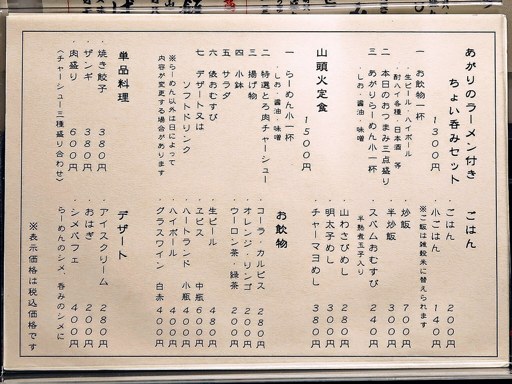 あがりのラーメン付き
ちょい呑みセット
1300円
一 お飲物一杯
生ビール・ハイボール
酎ハイ各種・日本酒 等
二 本日のおつまみ三点盛り
三 あがりらーめん小一杯
・しお・醤油・味噌
山頭火定食
1500円
一 らーめん小一杯
・しお・醤油・味噌
二 特選とろ肉チャーシュー
三 揚げ物
四 小鉢
五 サラダ
六 俵おむすび
七 デザート又は
ソフトドリンク
※らーめん以外は日によって
内容が変更する場合があります
単品料理
・焼き餃子 380円
・ザンギ 380円
・肉盛り 600円
(チャーシュー三種盛り合わせ)
ごはん
・ごはん 200円
・小ごはん 140円
※ご飯は雑穀米に替えられます
・炒飯 700円
・半炒飯 300円
・スパムおむすび 240円
半熟煮玉子入り
・山わさびめし 280円
・明太子めし 300円
・チャーマヨめし 380円
お飲物
・コーラ・カルピス 280円
・オレンジ・リンゴ 200円
・ウーロン茶・緑茶 200円
・生ビール 480円
・ヱビス 中瓶 600円
・ハートランド 小瓶 400円
・ハイボール 400円
・グラスワイン 白赤 400円
デザート
・アイスクリーム 280円
・おはぎ 200円
・シメパフェ 400円
らーめんのシメ、呑みのシメに
※表示価格は税込価格です